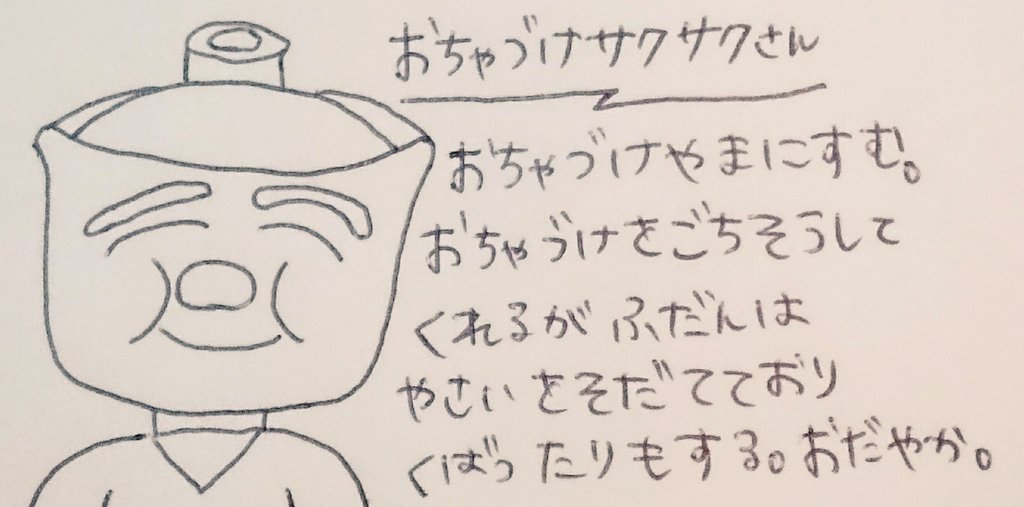 おちゃづけサクサクさん
おちゃづけやまにすむ。
おちゃづけをごちそうして
くれるが ふだんは
やさいをそだてており
くばったりもする。おだやか。